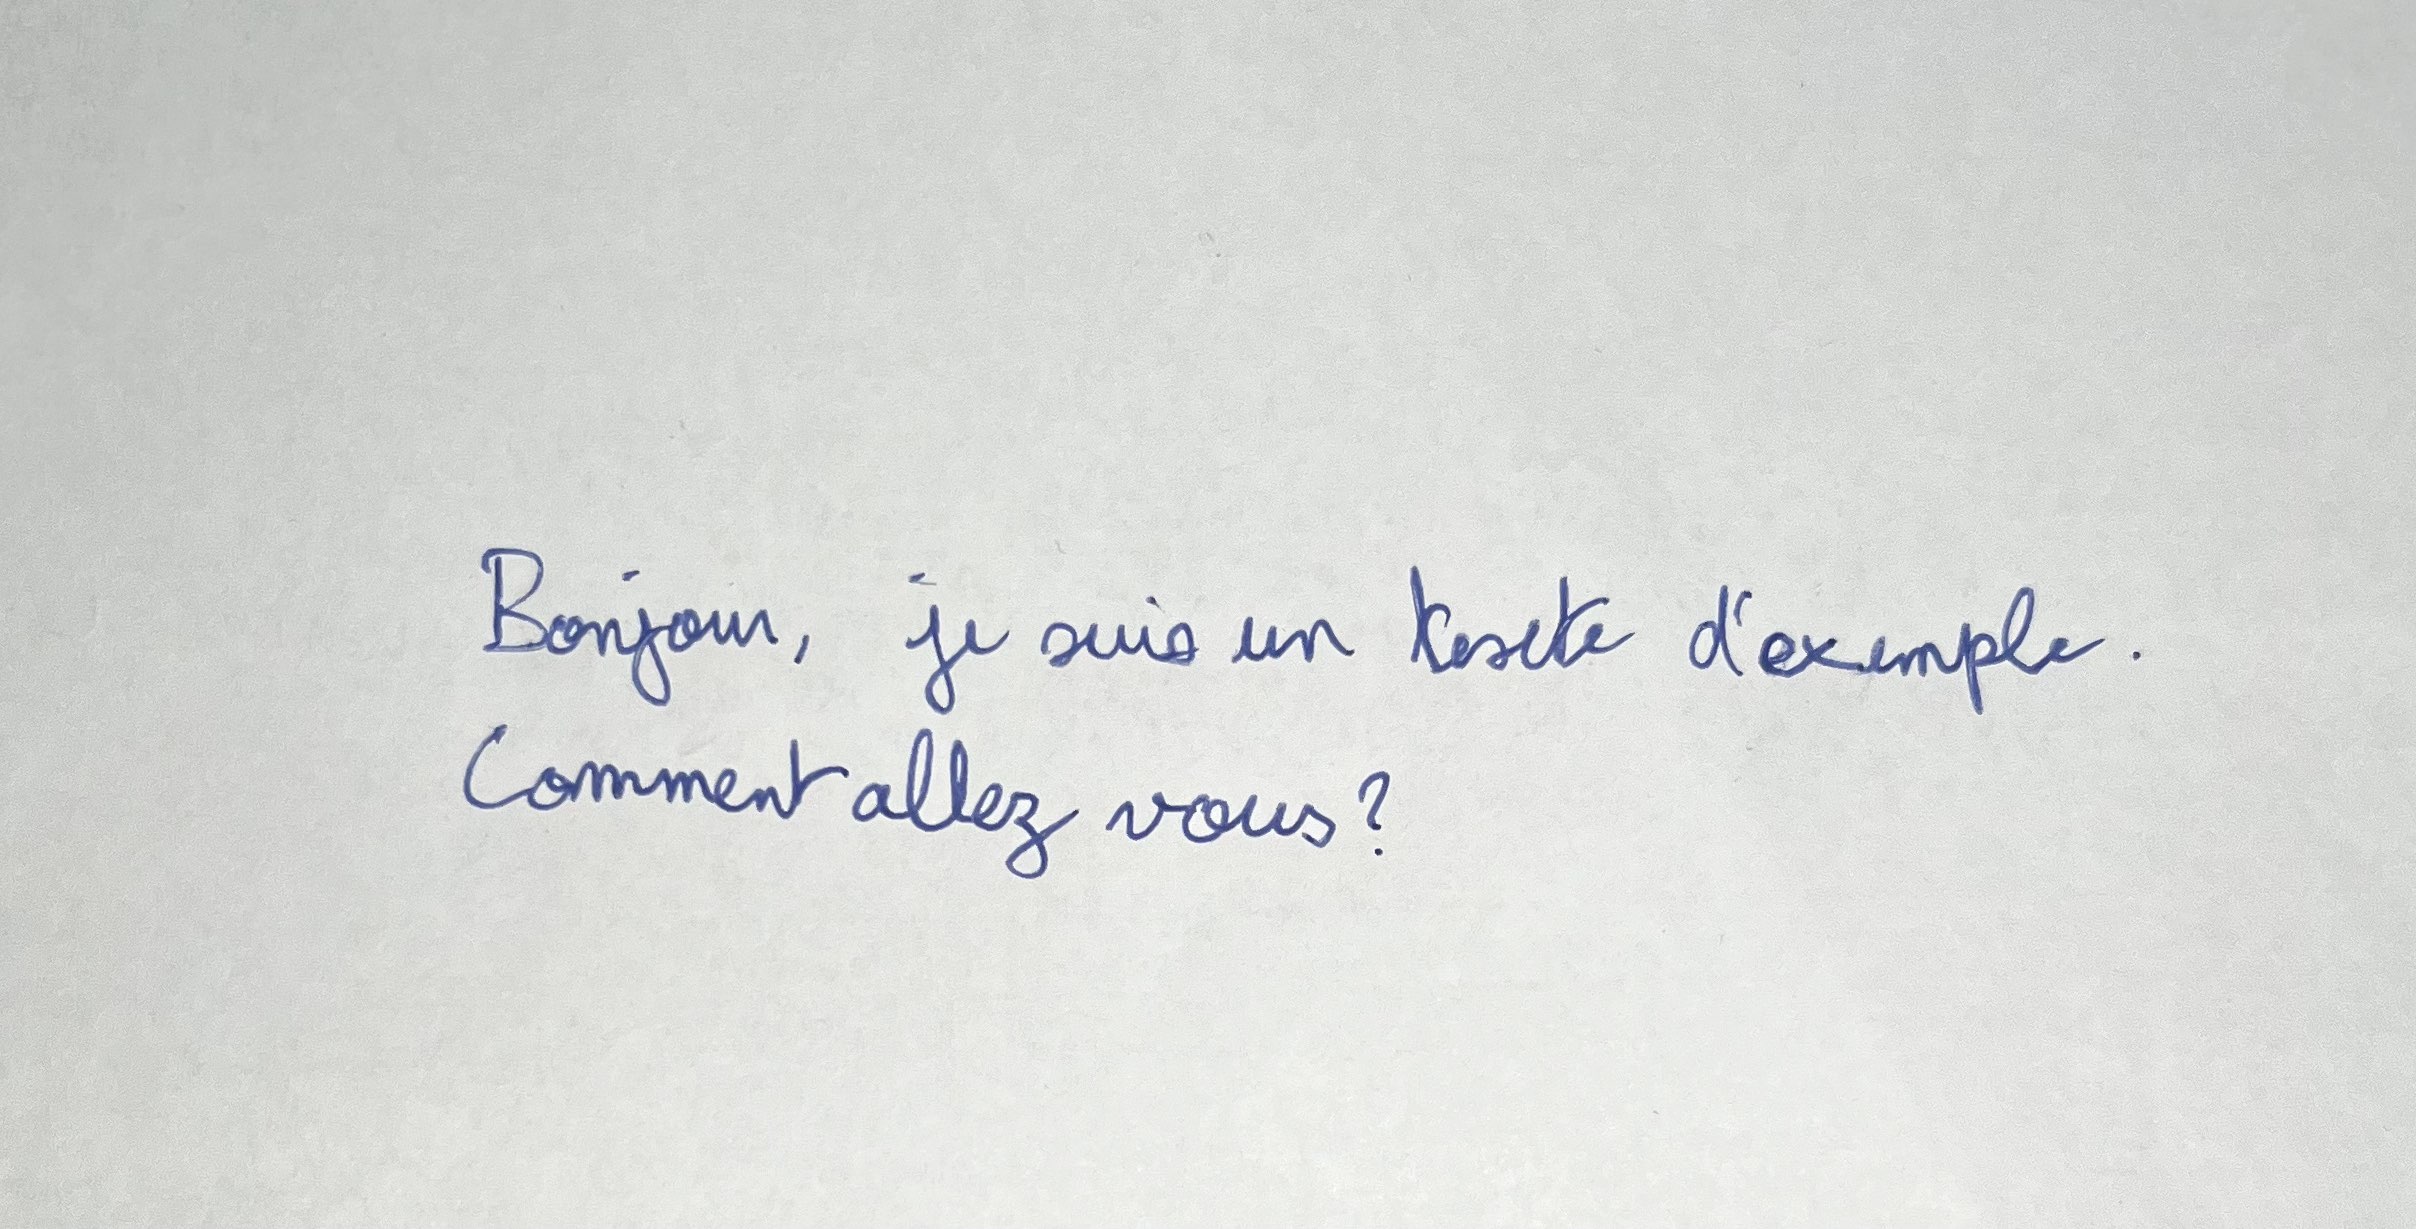 Bonjour, je suis un texte d'exemple.
Comment allez vous?